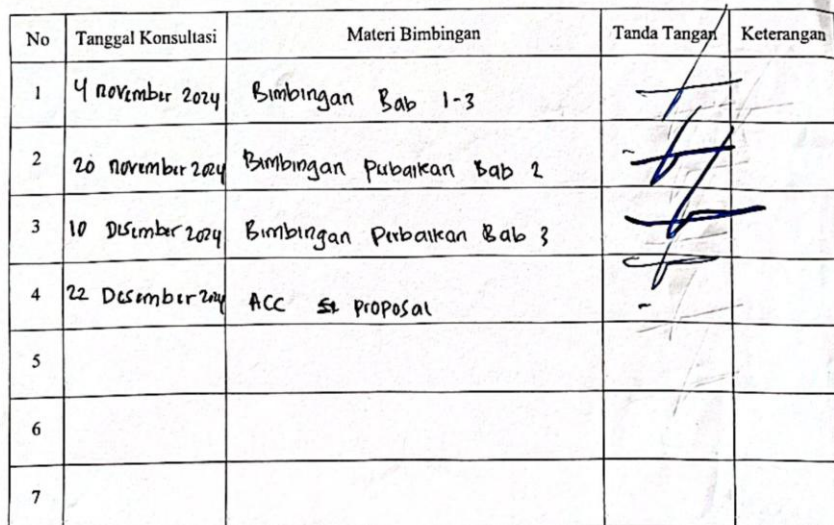 No Tanggal Konsultasi Materi Bimbingan Tanda Tangan Keterangan
1 4 november 2024 Bimbingan Bab 1-3
2 20 november 2024 Bimbingan Perbaikan Bab 2
3 10 Desember 2024 Bimbingan Perbaikan Bab 3
4 22 Desember 2024 ACC proposal
5
6
7